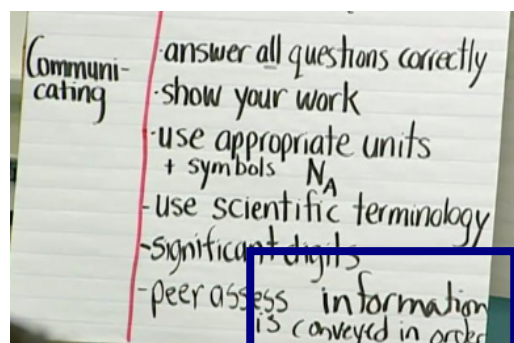 Communi-
cating
·answer all questions correctly
·show your work
·use appropriate units
+ symbols NA
-use scientific terminology
-significant digits
-peer assess information
is conveyed in order